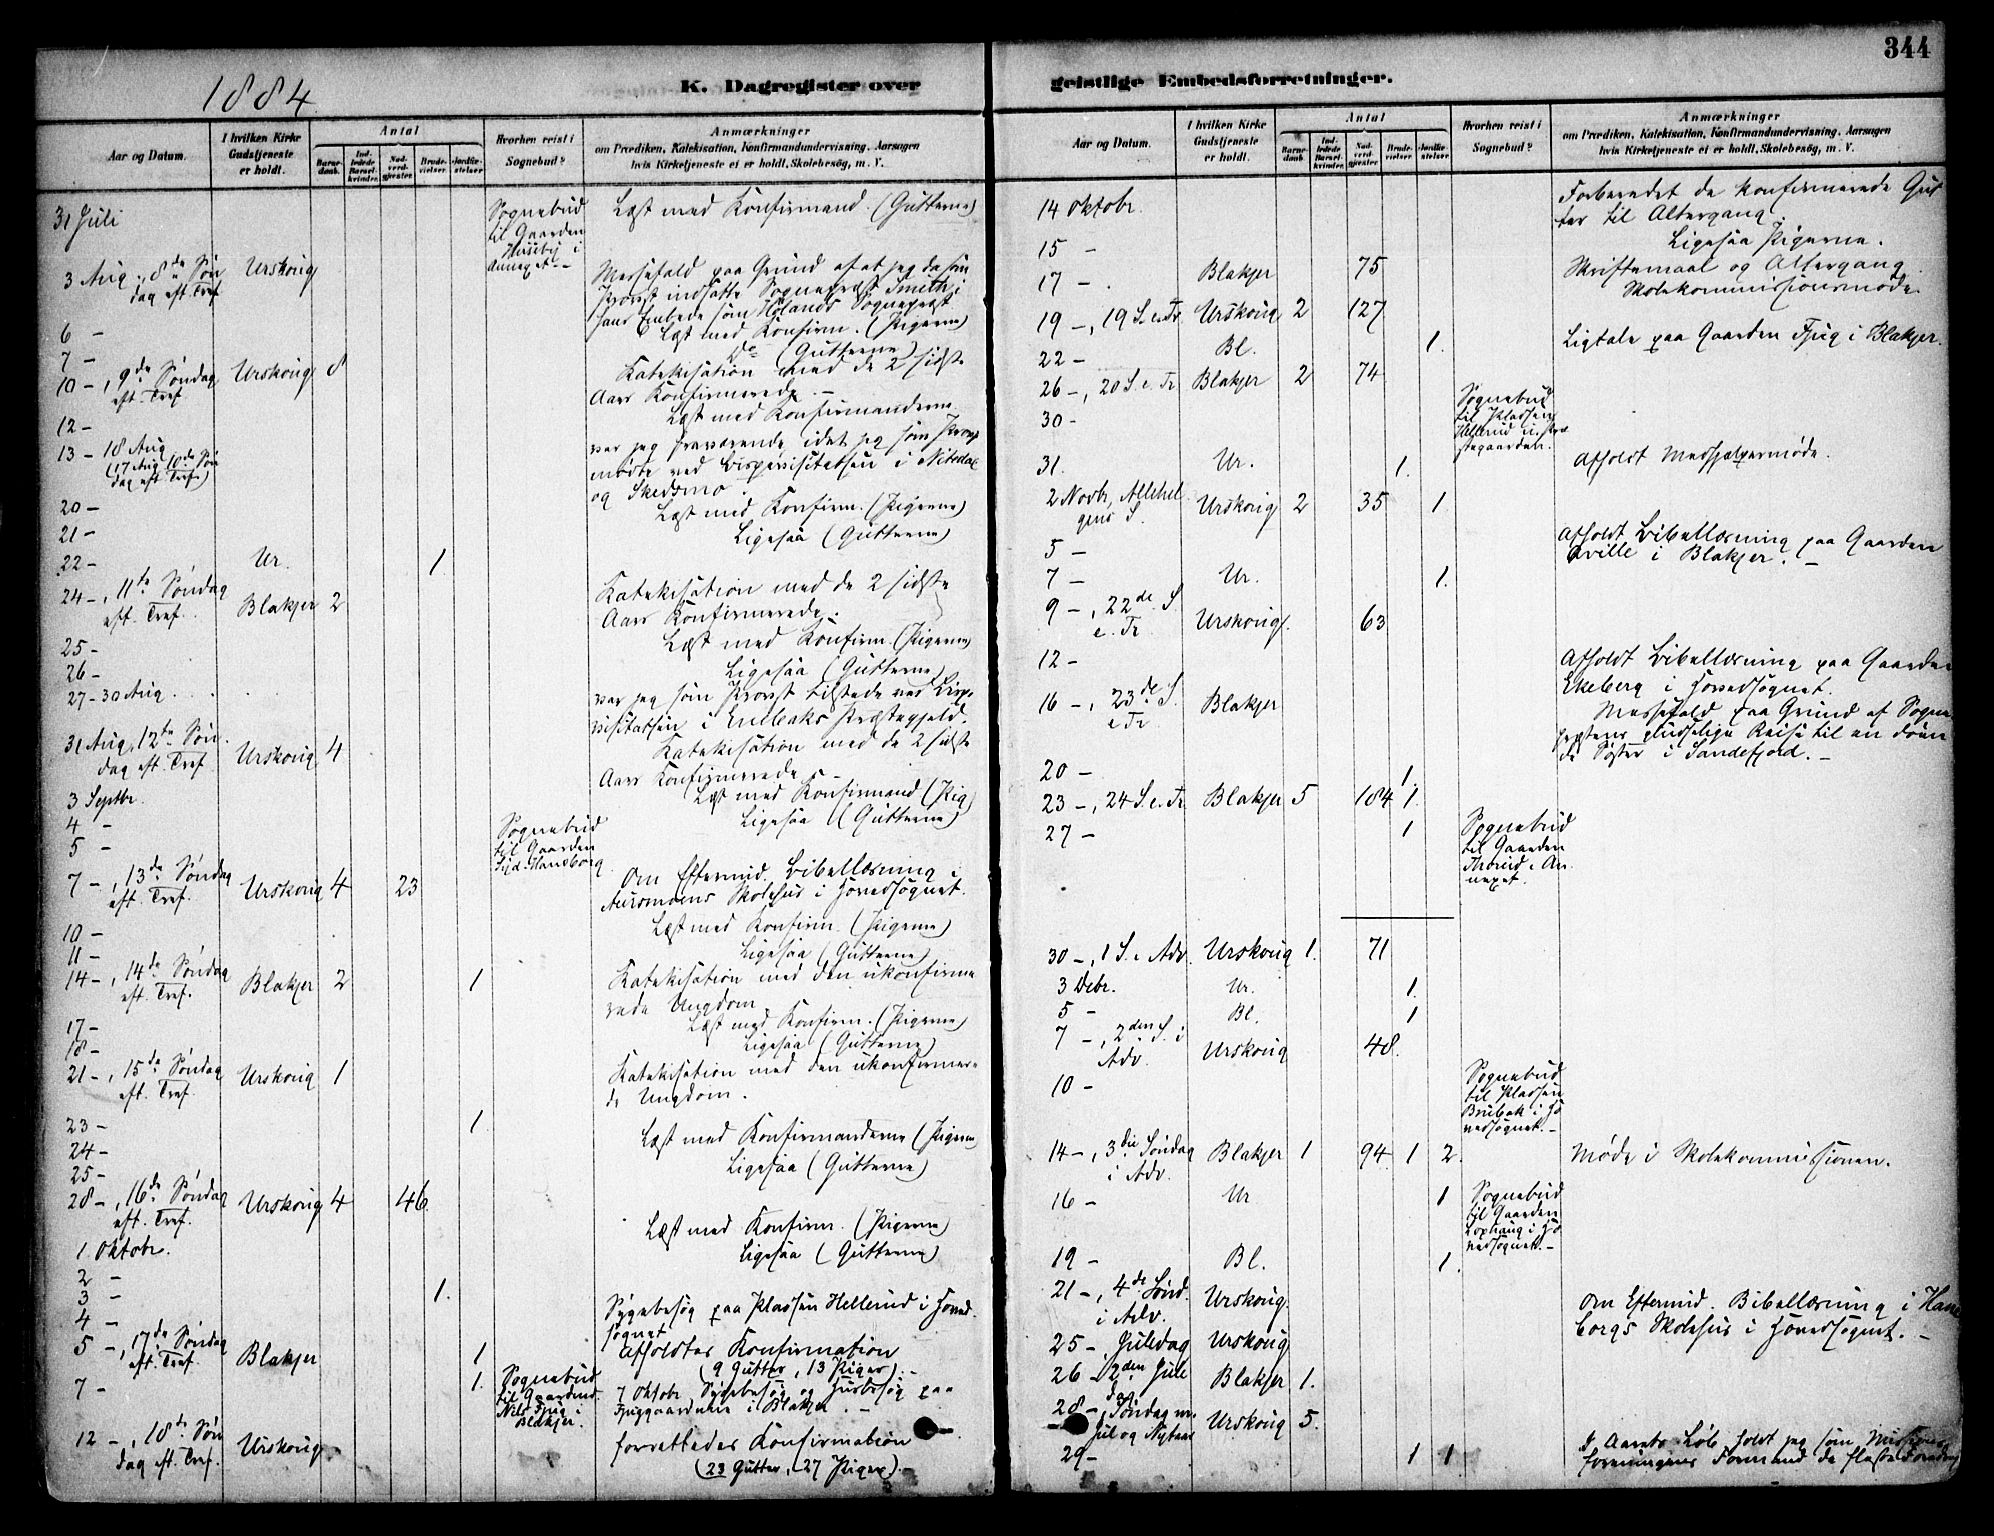 344
1884
K. Dagregister over
geistlige Embedsforretninger.
Aar og Datum.
I hvilken Kirke Gudstjeneste er holdt.
Antal
Barnedaab.
Indledede Barselkvinder.
Nadverdgjester.
Brudevielser.
Jordfæstelser
Hvorhen reist i Sognebud?
Anmærkninger
om Prædiken, Katekisation, Konfirmandundervisning, Aarsagen
hvis Kirketjeneste ei er holdt, Skolebesøg, m. V.
31 Juli Sognebud til Gaarden Huseby i Annexet. - Læst med Konfirmand. (Gutterne)
3 Aug., 8de Søndag eft. Tref. Urskoug Messefald paa Grund af at jeg da som
Provst indsatte Sognepræst Smith i
hans Embede som Hølands Sognepræst
6 - Læst med Konfirm. (Pigerne)
7 - Do (Gutterne)
10 -, 9de Søndag eft. Tref. Urskoug 8 Katekisation med de 2 sidste
Aars Konfirmerede. -
12 - Læst med Konfirmanderne
13 - 18 Aug (17 Aug 10de Søndag eft Tref.) var jeg fraværende, idet jeg som Provst
mødte ved Bispevisitatsen i Nitedal
og Skedsmo.
20 - Læst med Konfirm. (Pigerne)
21 - Ligesaa (Gutterne)
22 - Ur. 1.
24 -, 11te Søndag eft. Tref. Blakjer 2 Katekisation med de 2 sidste
Aars Konfirmerede.
25 - Læst med Konfirm. (Pigerne)
26 - Ligesaa (Gutterne)
27 - 30 Aug. var jeg som Provst tilstede ved Bispe-
visitatsen i Enebaks Præstegjeld.
31 Aug, 12te Søndag eft. Tref. Urskoug 4 Katekisation med de 2 sidste
Aars Konfirmerede
3 Septbr. Læst med Konfirmand (Pig)
4 - Ligesaa (Gutterne)
5 - Sognebud til Gaarden Syd-Haneborg
7 -, 13de Søndag eft. Tref. Urskoug 4 23 Om Eftermid. Bibellæsning i
Aursmoens Skolehus i Hovedsognet.
10 - Læst med Konfirm. (Pigerne)
11 - Ligesaa (Gutterne)
14 -, 14de Søndag eft. Tref. Blakjer 2 1 Katekisation med den ukonfirme
rede Ungdom
17 - Læst med Konfirm. (Pigerne)
18 - Ligesaa (Gutterne)
21 -, 15de Søndag eft. Tref. Urskoug 1 Katekisation med den ukonfirmere-
de Ungdom.
23 - 1.
24 - Læst med Konfirmanderne (Pigerne)
25 - Ligesaa (Gutterne)
28 -, 16de Søndag eft. Tref. Urskoug 4 46.
1 Oktobr. Læst med Konfirm. (Pigerne)
2 - Ligesaa (Gutterne)
3 - 1.
4 - Sygebesøg paa Pladsen Hellerud i Hoved-
sognet
5 -, 17de Søndag eft. Tref. Blakjer 1 Afholdtes Konfirmation
(9 Gutter, 13 Piger). -
7 - 1. Sognebud til Gaarden Nils Fjug i Blakjer. 7 Oktobr Sygebesøg og Husbesøg paa
Fjuggaardene i Blakjer. -
12 -, 18de Søndag eft. Tref. Urskoug forrettedes Konfirmation
(23 Gutter, 27 Piger). -
Aar og Datum.
I hvilken Kirke Gudstjeneste er holdt.
Antal
Barnedaab.
Indledede Barselkvinder.
Nadverdgjester.
Brudevielser.
Jordfæstelser.
Hvorhen reist i Sognebud?
Anmærkninger
om Prædiken, Katekisation, Konfirmandundervisning, Aarsagen
hvis Kirketjeneste ei er holdt, Skolebesøg, m. V.
14 Oktobr. Forberedet de konfirmerede Gut
ter til Altergang.
15 - Ligesaa Pigerne.
17 - Blakjer 75 Skriftemaal og Altergang.
Skolekommissionsmøde.
19 -, 19 S. e. Tr. Urskoug 2 127
22 - Bl. 1. Ligtale paa Gaarden Fjug i Blakjer.
26 -, 20 S. e. Tr Blakjer 2 74
30 - Sognebud til Pladsen Hellerud u. Præstegaarden.
31. Ur. 1. Afholdt Medhjælpermøde.
2 Novbr, Allehelgens S. Urskoug 2 35 1
5 - Afholdt Bibellæsning paa Gaarden
Kville i Blakjer. -
7 - Ur. 1.
9 -, 22de S. e. Tr. Urskoug. 63
12 - Afholdt Bibellæsning paa Gaarden
Ekeberg i Hovedsognet.
16 -, 23de S. e Tr Blakjer Messefald paa Grund af Sogne
præstens pludselige Reise til en døen
de Søster i Sandefjord. -
20 - 1
23 -, 24 S. e. Tr. Blakjer 5 184 1.
27 - 1 Sognebud til Gaarden Thorud i Annexet.
30 -, 1 S. i Adv. Urskoug 1. 71
3 Debr. Ur. 1.
5 - Bl. 1
7 -, 2den S. i Adv. Urskoug 48.
10 - Sognebud til Pladsen Brubak i Hovedsognet. -
14 -, 3die Søndag i Adv. Blakjer 1 94 1 2. Møde i Skolekommissionen.
16 - Ur 1 Sognebud til Gaarden Lophaug i Hovedsognet. -
19 - Bl. 1.
21 -, 4de Sønd. i Adv. Urskoug. Om Eftermid. Bibellæsning i Hane
borgs Skolehus i Hovedsognet. -
25 -, Juledag Urskoug
26 - 2den Juledag Blakjer 1.
28 -, Søndag m. Jul og Nytaar Urskoug 5.
29 - 1 1 I Aarets Løb holdt jeg som Missions
foreningens Formand de fleste Foredrag